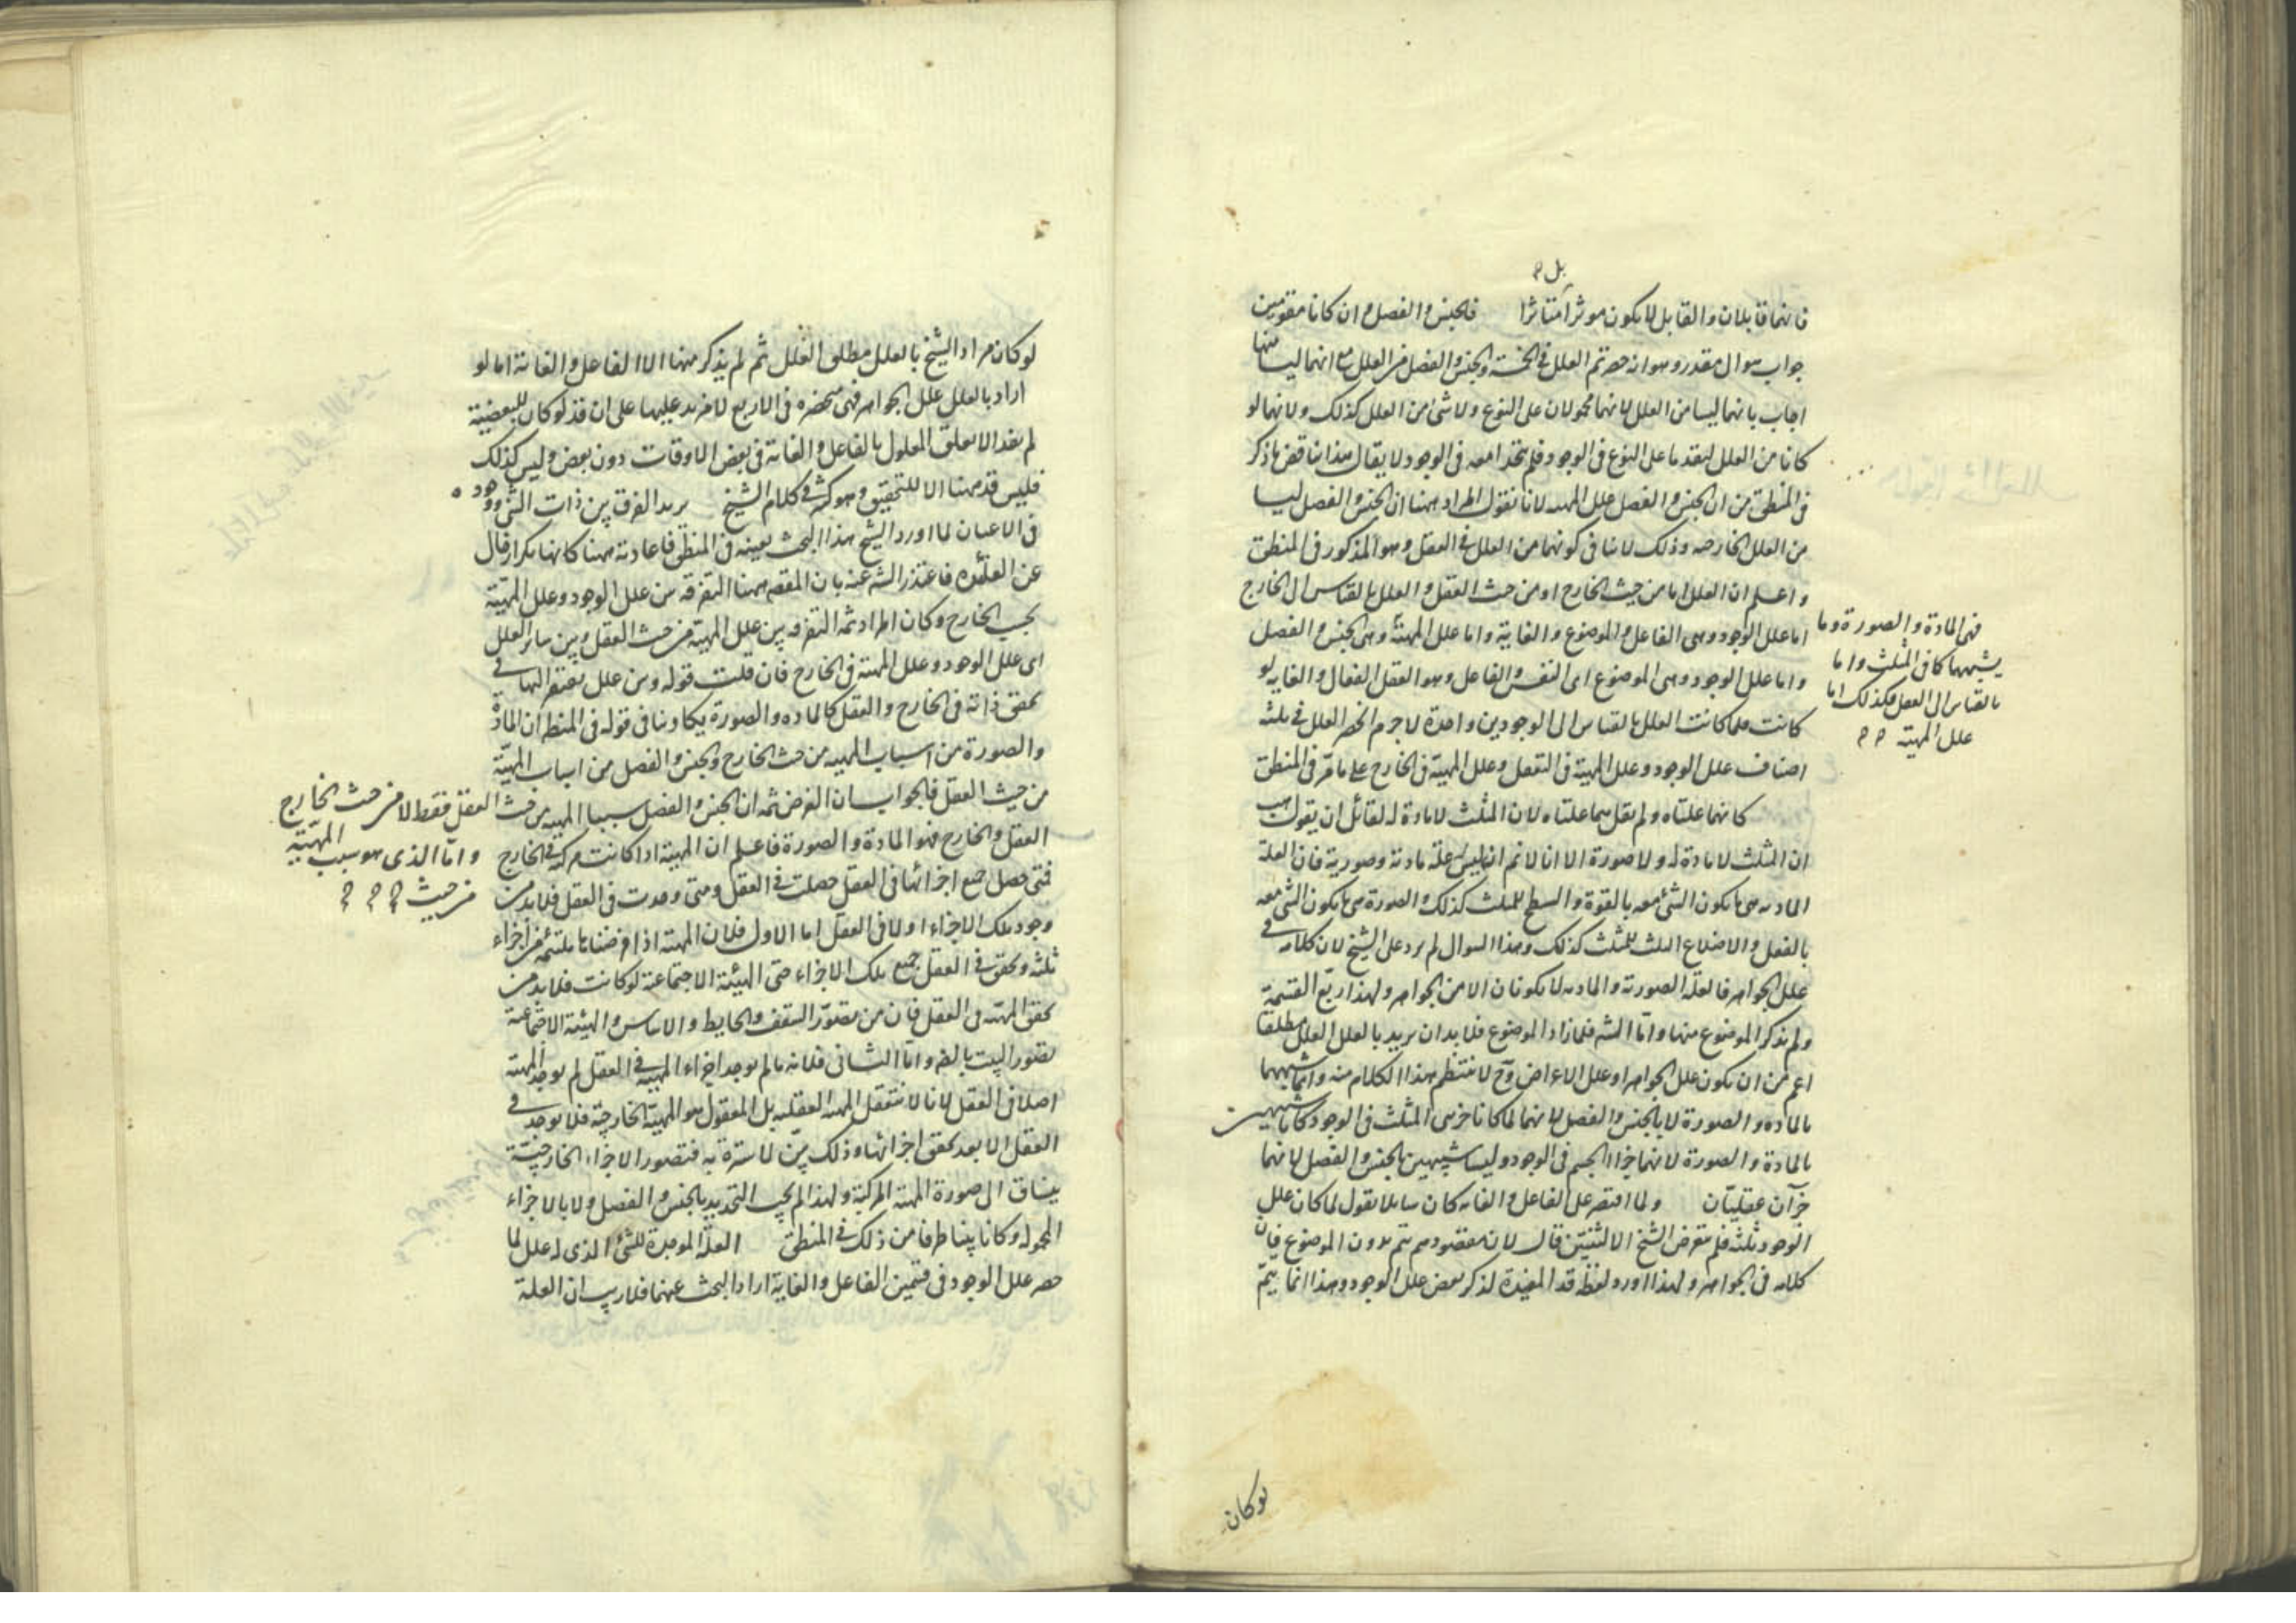 بل م
فانهما قابلان والقابل لا يكون موثرا متاثرا فالجنس والفصل وان كانا مقومين
جواب سوال مقدر وهو انه حصرتم العلل فى الخمسة والجنس والفصل من العلل مع انهما ليسا منها
اجاب بانهما ليسا من العلل لانهما محمولان على النوع ولا شئ من العلل كذلك ولانهما لو
كانا من العلل لتقدما على النوع فى الوجود فلم يتحدا معه فى الوجود لا يقال هذا يناقض ما ذكر
فى المنطق من ان الجنس والفصل علل المهية لانا نقول المراد ههنا ان الجنس والفصل ليسا
من العلل الخارجيه وذلك لا ينافى كونهما من العلل فى العقل وهو المذكور فى المنطق
واعلم ان العلل اما من حيث الخارج او من حيث العقل والعلل بالقياس الى الخارج
اما علل الوجود وهى الفاعل والموضوع والغاية واما علل المهية وهى الجنس والفصل
واما علل الوجود وهى الموضوع اى النفس والفاعل وهو العقل الفعال والغايه لو
كانت فلما كانت العلل بالقياس الى الوجودين واحدة لا جرم انحصر العلل فى ثلثه
اصناف علل الوجود وعلل المهية فى التعقل وعلل المهية فى الخارج على ما مر فى المنطق
كانهما علتاه ولم يقل هما علتاه لان المثلث لا مادة له لقائل ان يقول هب
ان المثلث لا مادة له ولا صورة الا انا لانم انه ليس له علة مادية وصورية فان العلة
الماديه هى ما يكون الشئ معه بالقوة والسطح للمثلث كذلك والصورة هى ما يكون الشئ معه
بالفعل والاضلاع الثلث للمثلث كذلك وهذا السوال لم يرد على الشيخ لان كلامه فى
علل الجواهر فالعلة الصورية والماديه لا يكونان الا من الجواهر ولهذا ربع القسمة
ولم يذكر الموضوع منها واما الشه فلما زاد الموضوع فلابد ان يريد بالعلل العلل مطلقا
اعم من ان يكون علل الجواهر او علل الاعراض وح لا ينتظم هذا الكلام منه وانما شبههما
بالماده والصورة لا بالجنس والفصل لانهما لما كانا جزئى المثلث فى الوجود كانا شبيهين
بالمادة والصورة لانهما جزا الجسم فى الوجود وليسا شبيهين بالجنس والفصل لانهما
جزآن عقليان ولما اقتصر على الفاعل والغايه كان سايلا يقول لما كان علل
الوجود ثلثه فلم تعرض الشيخ الا لاثنتين قال لان مقصوده يتم بدون الموضوع فان
كلامه فى الجواهر ولهذا اورد لفظة قد المفيدة لذكر بعض علل الوجود وهذا انما يتم
فهى المادة والصورة وما
يشبههما كما فى المثلث واما
بالقياس الى العقل فكذلك اما
علل المهية م م
لوكان
لو كان مراد الشيخ بالعلل مطلق العلل ثم لم يذكر منها الا الفاعل والغاية اما لو
اراد بالعلل علل الجواهر فهى منحصره فى الاربع لا مزيد عليها على ان قد لو كان للبعضية
لم يفد الا تعلق المعلول بالفاعل والغاية فى بعض الاوقات دون بعض وليس كذلك
فليس قد ههنا الا للتحقيق وهو كثير فى كلام الشيخ يريد الفرق بين ذات الشئ ووجوده
فى الاعيان لما اورد الشيخ هذا البحث بعينه فى المنطق فاعادته ههنا كانها تكرار خال
عن الفائدة فاعتذر الشه عنه بان المقصه ههنا التفرقه بين علل الوجود وعلل المهية
بحسب الخارج وكان المراد ثمه التفرقه بين علل المهية من حيث العقل وبين ساير العلل
اى علل الوجود وعلل المهية فى الخارج فان قلت قوله وبين علل يفتقر اليها فى
تحقق ذاته فى الخارج والعقل كالماده والصورة يكاد ينافى قوله فى المنطق ان المادة
والصورة من اسباب المهيه من حيث الخارج والجنس والفصل من اسباب المهية
من حيث العقل فالجواب ان الغرض ثمه ان الجنس والفصل سببا المهيه من حيث العقل فقط لا من حيث الخارج
العقل والخارج فهو المادة والصورة فاعلم ان المهية اذا كانت مركبة فى الخارج
فمتى حصل جميع اجزائها فى العقل حصلت فى العقل ومتى وجدت فى العقل فلابد من
وجود تلك الاجزاء اولا فى العقل اما الاول فلان المهية اذا فرضناها ملتئمه من اجزاء
ثلثه وتحقق فى العقل جميع تلك الاجزاء حتى الهيئة الاجتماعية لو كانت فلابد من
تحقق المهية فى العقل فان من تصور السقف والحايط والاساس والهيئة الاجتماعية
تصور البيت بالضه واما الثانى فلانه ما لم يوجد اجزاء المهية فى العقل لم يوجد المهية
اصلا فى العقل لانا لا نتعقل المهية العقليه بل المعقول هو المهية الخارجية فلا يوجد فى
العقل الا بعد تحقق اجزائها وذلك بين لا سترة به فتصور الاجزاء الخارجية
ينساق الى صورة المهية المركبة ولهذا لم يجب التحديد بالجنس والفصل ولا بالاجزاء
المحموله وكانا بينا طرفا من ذلك فى المنطق العلة الموجدة للشئ الذى له علل لما
حصر علل الوجود فى قسمين الفاعل والغاية اراد البحث عنهما فلا ريب ان العلة
واما الذى هو سبب المهية
من حيث م م م